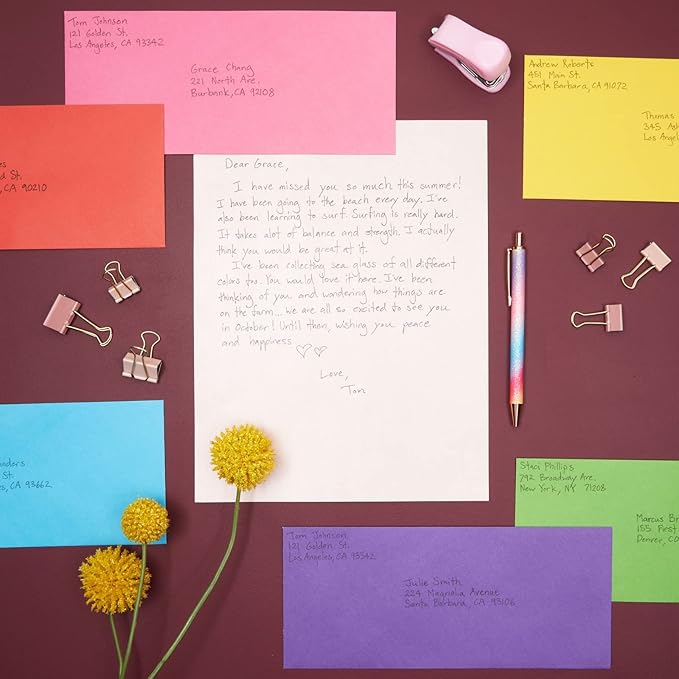 Tom Johnson
121 Golden St.
Los Angeles, CA 93342
Grace Chang
221 North Ave.
Burbank, CA 92108
Andrew Roberts
451 Main St.
Santa Barbara, CA 91072
Thomas
345
Los Angel
es
d St.
, CA 90210
Dear Grace,
I have missed you so much this summer!
I have been going to the beach every day. I've
also been learning to surf. Surfing is really hard.
It takes alot of balance and strength. I actually
think you would be great at it.
I've been collecting sea glass of all different
colors too. You would love it here. I've been
thinking of you and wandering how things are
on the farm... we are all so excited to see you
in October! Until then, wishing you peace
and happiness
Love,
Tom
nders
St.
es, CA 93662
Staci Phillips
792 Broadway Ave.
New York, NY 71208
Marcus Br
155 First
Denver, CO
Tom Johnson
121 Golden St.
Los Angeles, CA 93342
Julie Smith
224 Magnolia Avenue
Santa Barbara, CA 93106